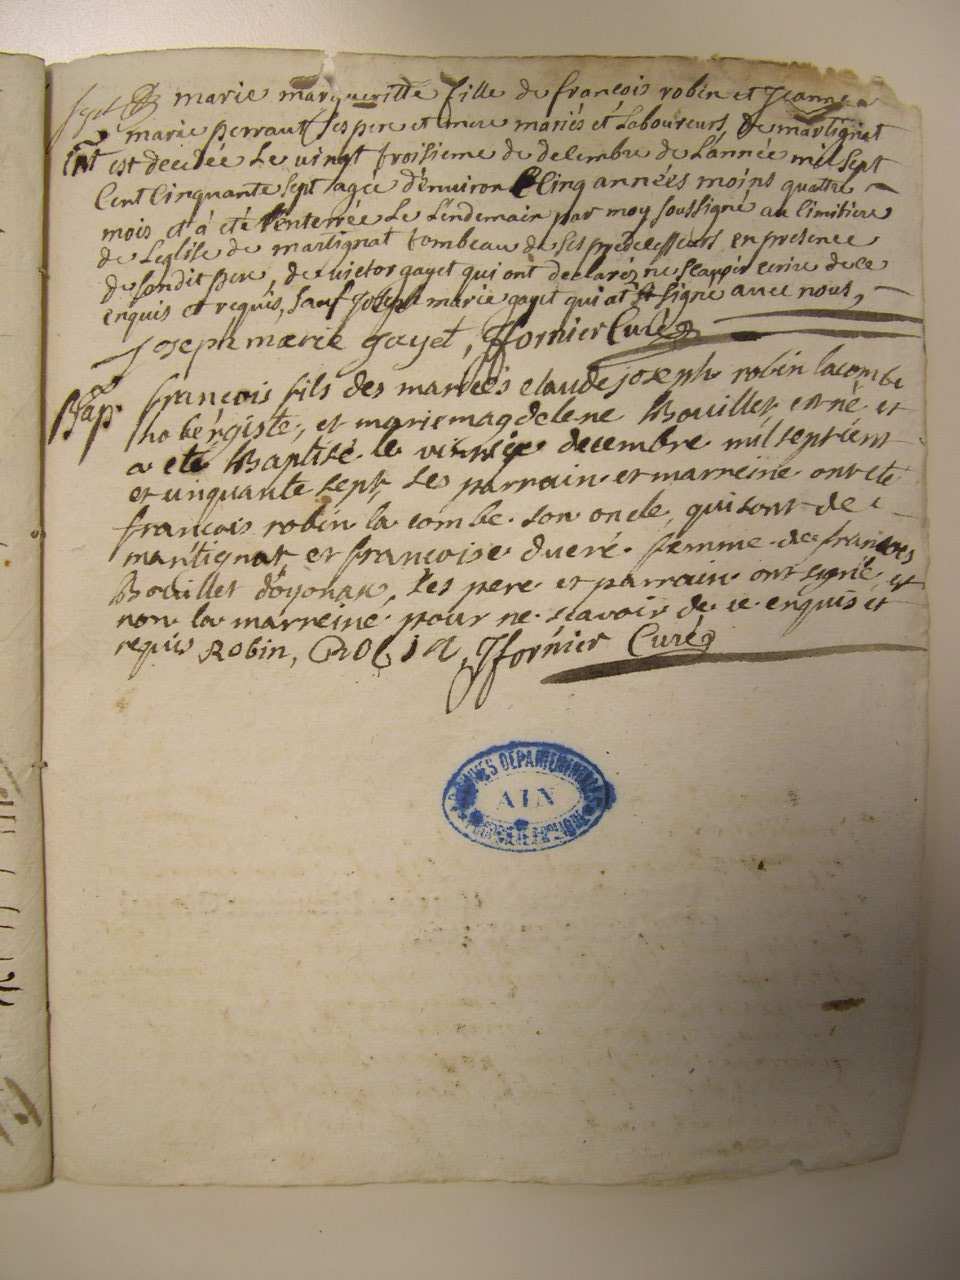 marie margueritte fille de françois robin et Jeanne
marie perraut ses pere et mere mariés et Laboureurs, de martignat
Ent est decedée Le vingt troisieme de decembre de L'année mil sept
Cent Cinquante sept agée d'environ Cinq années moins quattre
mois et a été enterrée Le Lendemain par moy soussigné au Cimitiere
de Leglise de martignat tombeau de ses predecesseurs en presence
de sondit pere, de victor gayet qui ont declarés ne scavoir ecrire de ce
enquis et requis, sauf Joseph marie gayet qui at signé avec nous,
Joseph marie gayet, Jfornier Curé
Bap. françois fils des mariés claude joseph robin lacombe
hobergiste, et marie magdelene Bouillet, est né et
a eté Baptisé le decembre mil sept cent
et cinquante sept, ses parrain et marreine ont eté
francois robin la combe son oncle, qui sont de
martignat, et francoise ducré femme de francois
Bouillet d'oyonax, les pere et parrain ont signé et
non la marreine pour ne scavoir de ce enquis et
requis Robin, RObiN, Jfornier Curé
ARCHIVES DEPARTEMENTALES
AIN